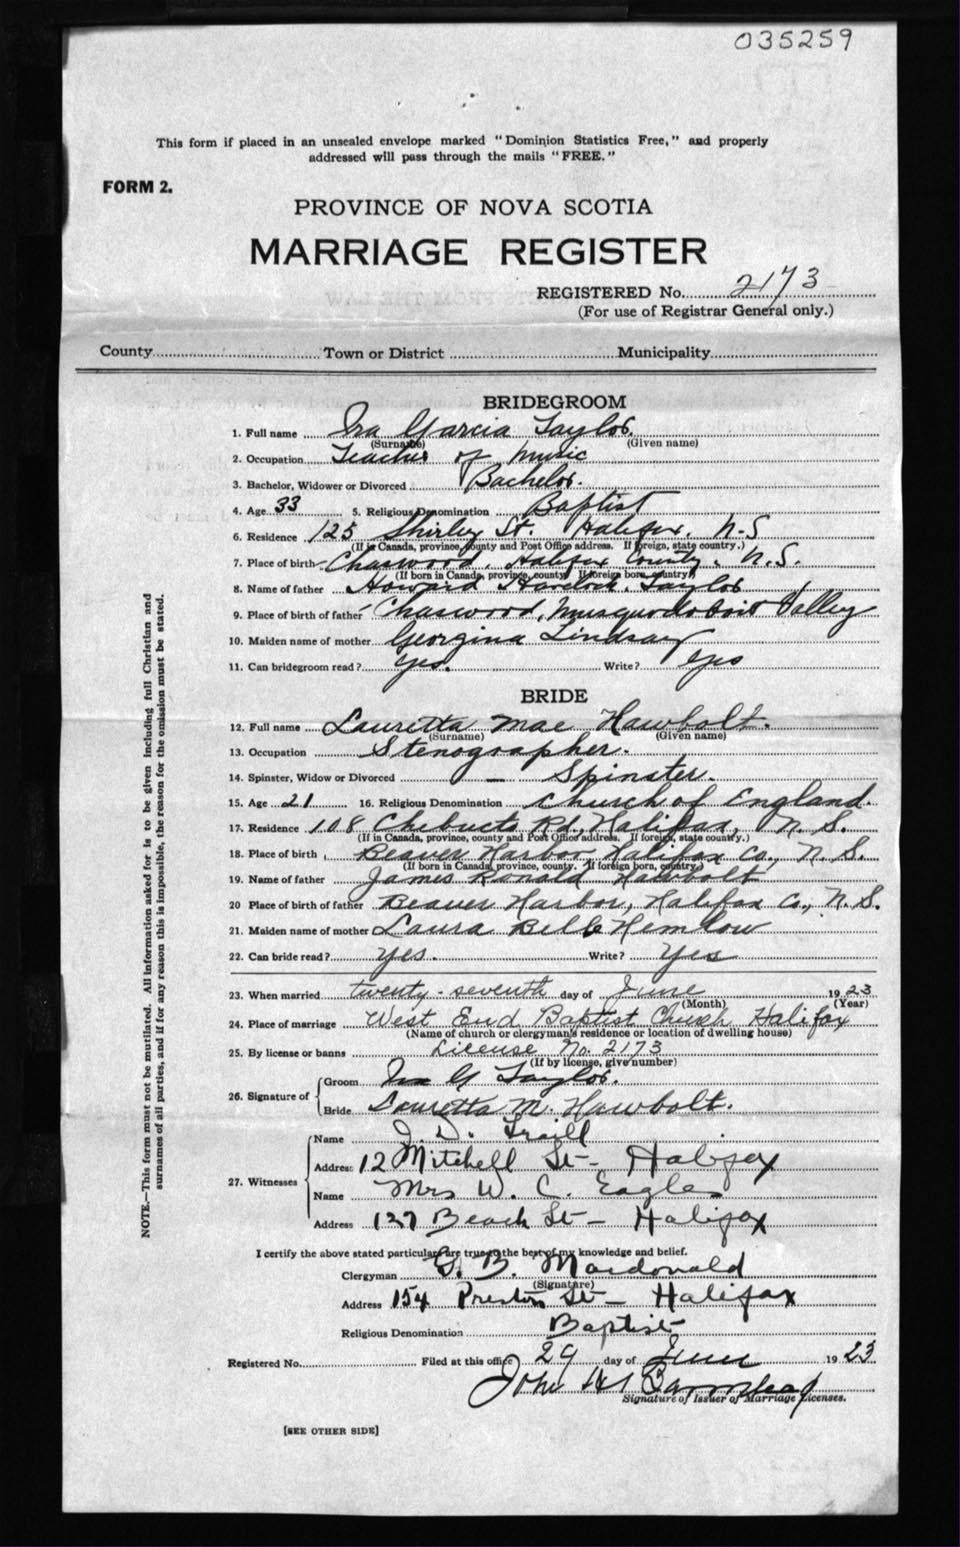 035259
This form if placed in an unsealed envelope marked "Dominion Statistics Free," and properly
addressed will pass through the mails "FREE."
FORM 2.
PROVINCE OF NOVA SCOTIA
MARRIAGE REGISTER
REGISTERED No. 2173
(For use of Registrar General only.)
County Town or District Municipality
BRIDEGROOM
1. Full name Ira Garcia Taylor
(Surname) (Given name)
2. Occupation Teacher of Music
3. Bachelor, Widower or Divorced Bachelor.
4. Age 33 5. Religious Denomination Baptist
6. Residence 125 Shirley St. Halifax, N-S
(If in Canada, province, county and Post Office address. If foreign, state country.)
7. Place of birth Chaswood, Halifax County, N.S.
(If born in Canada, province, county. If foreign born, country)
8. Name of father Howard Taylor
9. Place of father Chaswood, Musquodoboit Valley
10. Maiden name of mother Georgina Lindsay
11. Can bridegroom read? Yes. Write? Yes
BRIDE
12. Full name Lauretta Mae Hawbolt.
(Surname) (Given name)
13. Occupation Stenographer.
14. Spinster, Widow or Divorced – Spinster.
15. Age 21 16. Religious Denomination Church of England.
17. Residence 108 Chebucto Rd, Halifax, N. S.
(If in Canada, province, county and Post Office address. If foreign, state country.)
18. Place of birth Beaver Harbor, Halifax Co., N. S.
(If born in Canada, province, county. If foreign born, country.)
19. Name of father James Ronald Hawbolt
20 Place of birth of father Beaver Harbor, Halifax Co., N. S.
21. Maiden name of mother Laura Belle Hemlow
22. Can bride read? Yes. Write? Yes
23. When married twenty-seventh day of June 1923
(Month) (Year)
24. Place of marriage West End Baptist Church Halifax
(Name of church or clergyman's residence or location of dwelling house)
25. By license or banns License No. 2173
(If by license, give number)
26. Signature of
Groom Ira G Taylor.
Bride Lauretta M. Hawbolt.
27. Witnesses
Name J. D. Traill
Address 12 Mitchell St– Halifax
Name Mrs W. C. Eagles
Address 127 Beach St– Halifax
I certify the above stated particulars are true to the best of my knowledge and belief.
Clergyman G. B. Macdonald
(Signature)
Address 154 Preston St– Halifax
Religious Denomination Baptist
Registered No. Filed at this office 29 day of June 1923
John H Barnstead
Signature of Issuer of Marriage Licenses.
[SEE OTHER SIDE]
NOTE.—This form must not be mutilated. All information asked for is to be given including full Christian and
surnames of all parties, and if for any reason this is impossible, the reason for the omission must be stated.